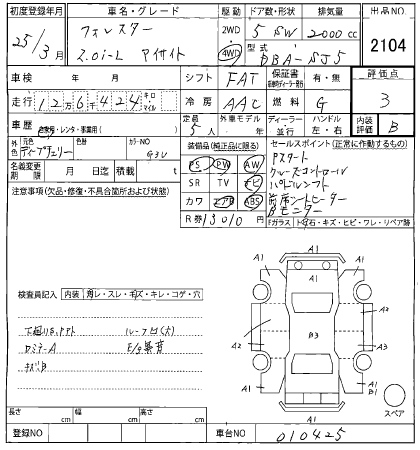 初度登録年月 車名・グレード 駆動 ドア数・形状 排気量 出品NO
25/3月 フォレスター 2WD 5 SW 2000 cc 2104
2.0i-L アイサイト 4WD 型式 DBA-SJ5
車検 年 月 シフト FAT 保証書 有・無 評価点
走行 12万6千424 キロ マイル 冷房 AAC 燃料 G 3
車歴 自家用・レンタ・事業用( ) 定員 5人 外車モデル 年 ディーラー 並行 ハンドル 左・右 内装評価 B
色 元色 ディープチェリー 色替 カラーNO G3U
装備品(純正品に限る) セールスポイント(正常に動作するもの)
名義変更期限 月 日 積載 t
PS PW AW Pスタート
注意事項(欠品・修復・不具合箇所および状態)
SR TV ナビ クルーズコントロール
カワ エアB ABS パドルシフト
R券 13010 円 前席シートヒーター
Bモニター
Fガラス トビ石・キズ・ヒビ・ワレ・リペア跡
検査員記入 内装 スレ・キレ・コゲ・穴
A1
A1
A1
A2
A2
B3
A2
A3
A1
A1
B1
A1
スペア
ルーフ凹(大)
キズB
E/g異音
長さ cm 幅 cm 高さ cm
登録NO 車台NO 010425